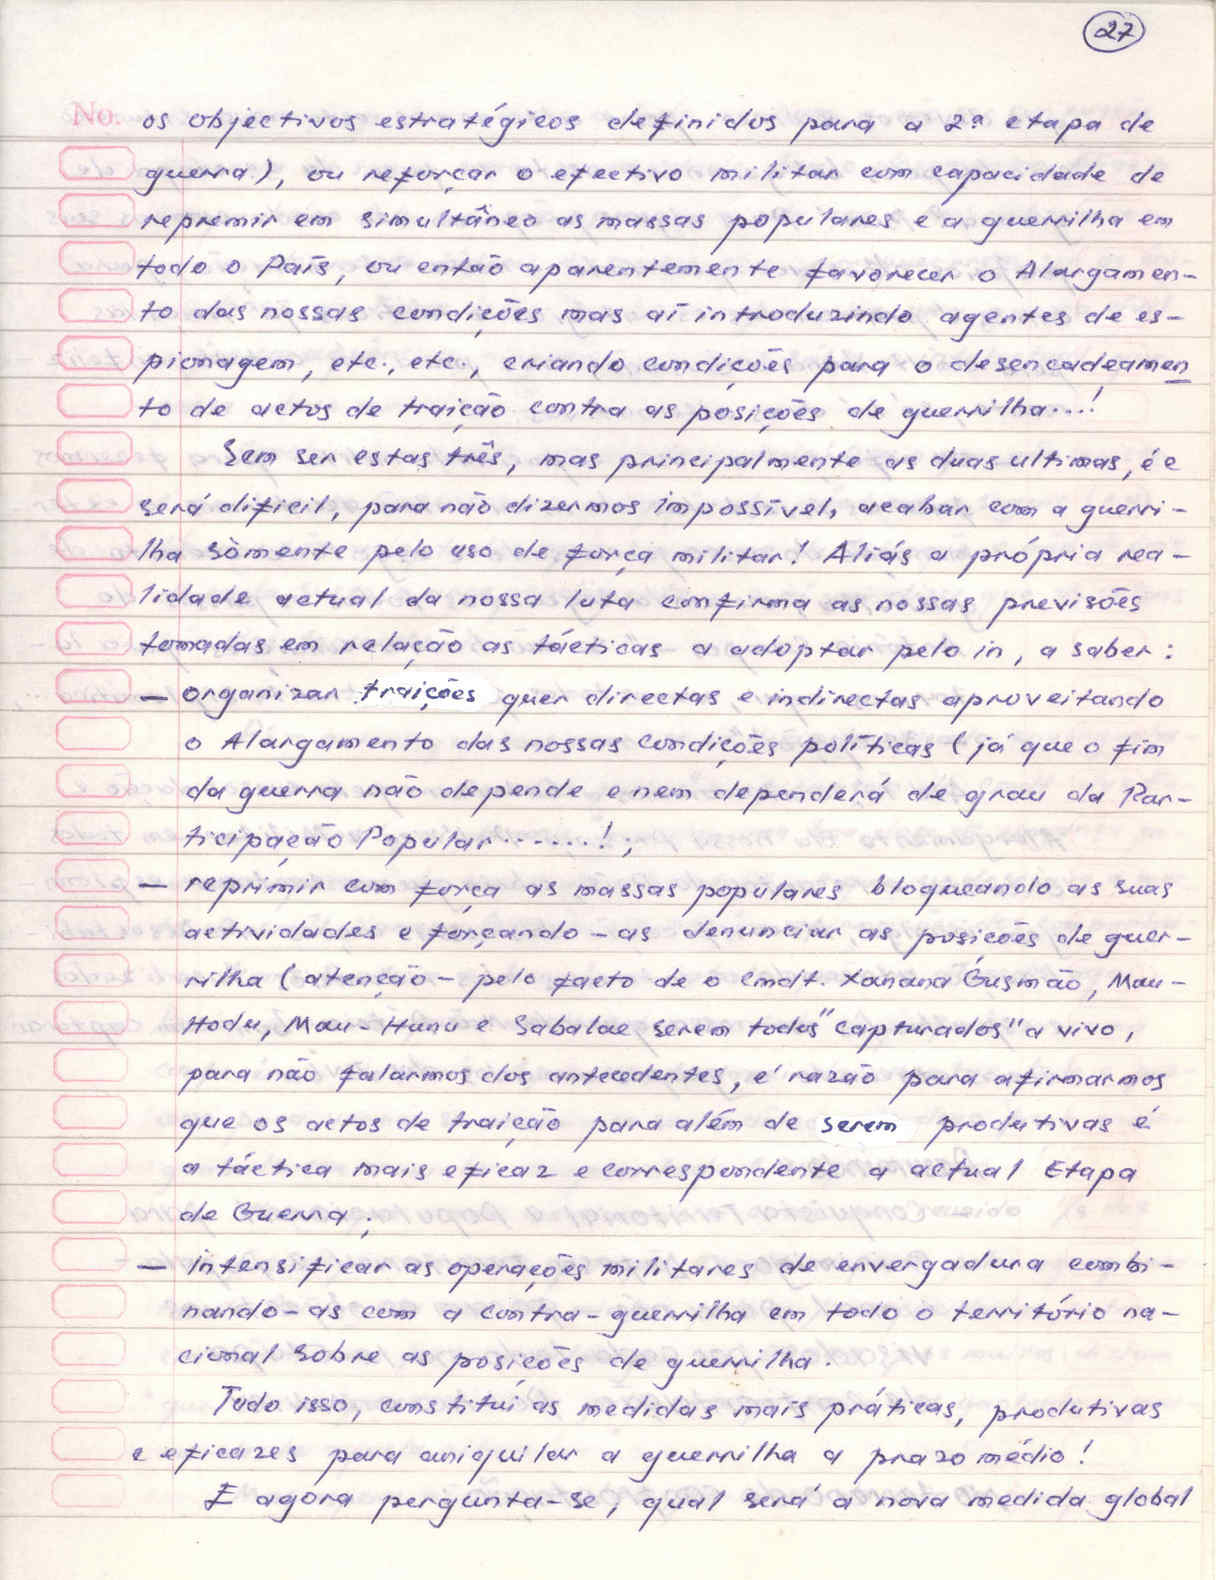 27
No. os objectivos estratégicos definidos para a 2ª etapa de
guerra), ou reforçar o efectivo militar com capacidade de
repremir em simultâneo as massas populares e a guerrilha em
todo o País, ou então aparentemente favorecer o Alargamen-
to das nossas condições mas aí introduzindo agentes de es-
pionagem, etc., etc., criando condições para o desencadeamen
to de actos de traição contra as posições de guerrilha...!
Sem ser estas três, mas principalmente as duas ultimas, é e
será dificil, para não dizermos impossível, acabar com a guerri-
lha sòmente pelo uso de força militar! Aliás a própria rea-
lidade actual da nossa luta confirma as nossas previsões
tomadas em relação as tácticas a adoptar pelo in, a saber:
— organizar traições quer directas e indirectas aproveitando
o Alargamento das nossas condições políticas (já que o fim
da guerra não depende e nem dependerá de grau da Par-
ticipação Popular......!;
— reprimir com força as massas populares bloqueando as suas
actividades e forçando-as denunciar as posições de guer-
rilha (atenção - pelo facto de o Cmdt. Xanana Gusmão, Mau-
Hodu, Mau-Hunu e Sabalae serem todos "capturados" a vivo,
para não falarmos dos antecedentes, é razão para afirmarmos
que os actos de traição para além de serem produtivas é
a táctica mais eficaz e correspondente a actual Etapa
de Guerra;
— intensificar as operações militares de envergadura combi-
nando-as com a contra-guerrilha em todo o território na-
cional sobre as posições de guerrilha.
Tudo isso, constitui as medidas mais práticas, produtivas
e eficazes para aniquilar a guerrilha a prazo médio!
E agora pergunta-se, qual será a nova medida global